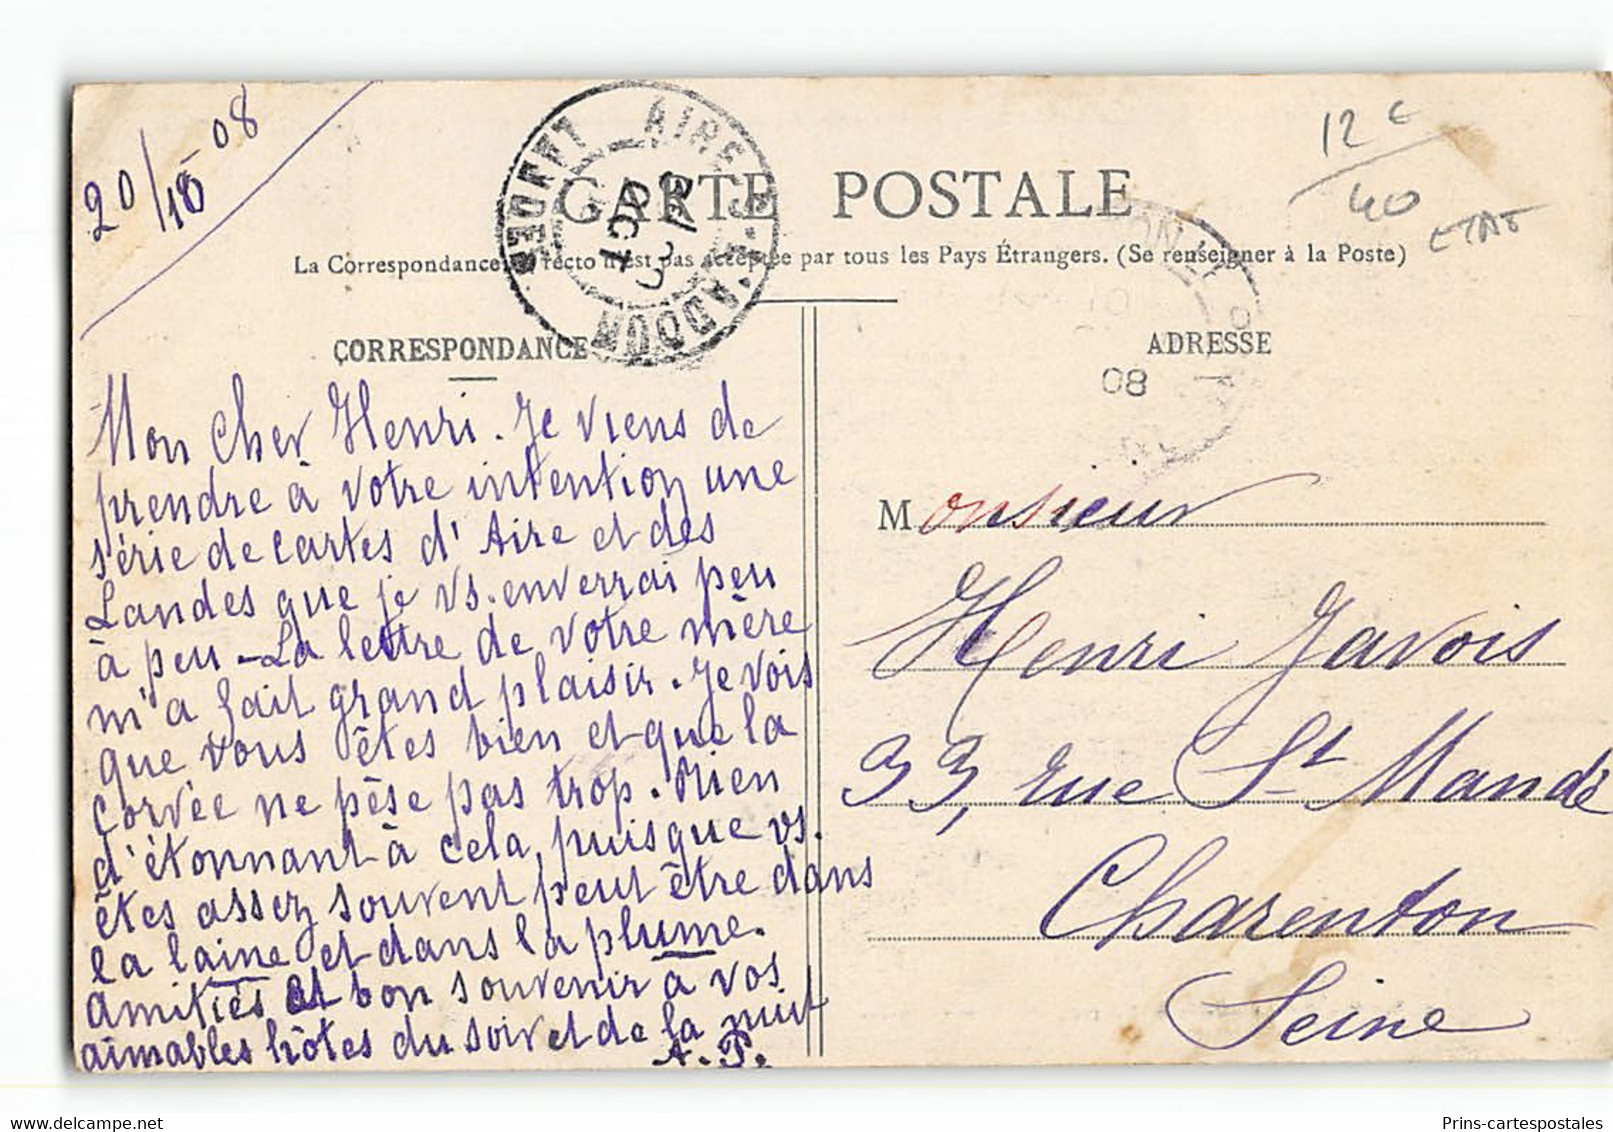 20/10-08
12 €
40
ETAT
AIRE-S-L'ADOUR
CARTE POSTALE
La Correspondance au recto n'est pas acceptée par tous les Pays Étrangers. (Se renseigner à la Poste)
CORRESPONDANCE
Mon cher Henri. Je viens de
prendre à votre intention une
série de cartes d'Aire et des
Landes que je vs. enverrai peu
à peu - La lettre de votre mère
m'a fait grand plaisir. Je vois
que vous êtes bien et que la
corvée ne pèse pas trop. Rien
d'étonnant à cela, puisque vs.
êtes assez souvent peut être dans
la laine et dans la plume.
Amitiés et bon souvenir à vos
aimables hôtes du soir et de la nuit
A. P.
ADRESSE
08
Monsieur
Henri Javois
33, rue St Mandé
Charenton
Seine
Prins-cartespostales